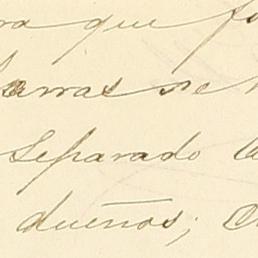 ra que fo
barras se
Separado
dueños; C